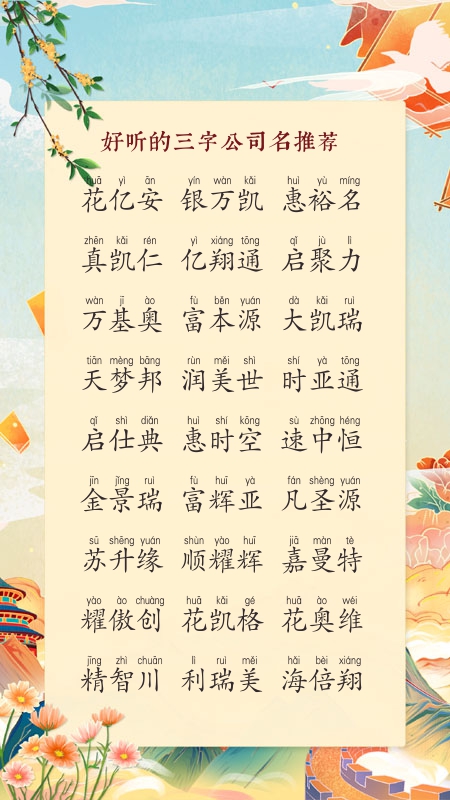 好听的三字公司名推荐
huā yì ān yín wàn kǎi huì yù míng
花亿安 银万凯 惠裕名
zhēn kǎi rén yì xiáng tōng qǐ jù lì
真凯仁 亿翔通 启聚力
wàn jī ào fù běn yuán dà kǎi ruì
万基奥 富本源 大凯瑞
tiān mèng bāng rùn měi shì shí yà tōng
天梦邦 润美世 时亚通
qǐ shì diǎn huì shí kōng sù zhōng héng
启仕典 惠时空 速中恒
jīn jǐng ruì fù huī yà fán shèng yuán
金景瑞 富辉亚 凡圣源
sū shēng yuán shùn yào huī jiā màn tè
苏升缘 顺耀辉 嘉曼特
yào ào chuàng huā kǎi gé huā ào wéi
耀傲创 花凯格 花奥维
jīng zhì chuān lì ruì měi hǎi bèi xiáng
精智川 利瑞美 海倍翔